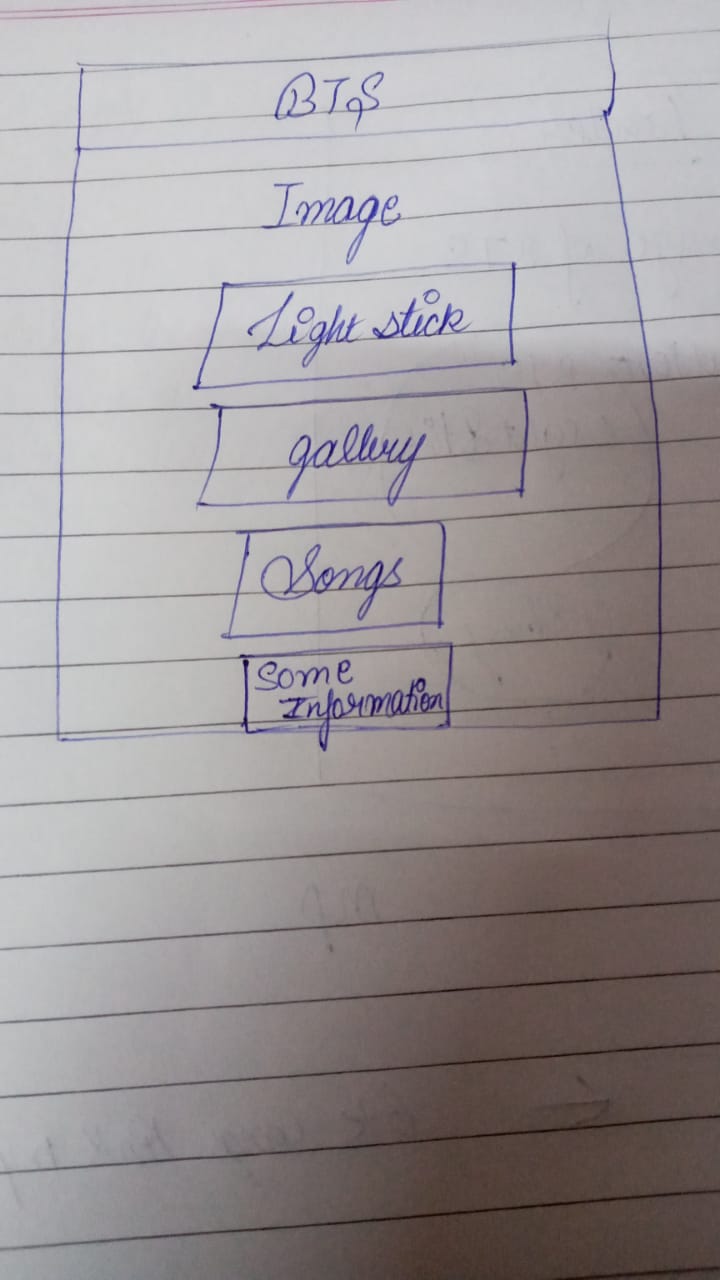 BTS
Image
Light stick
gallery
Songs
Some
Information